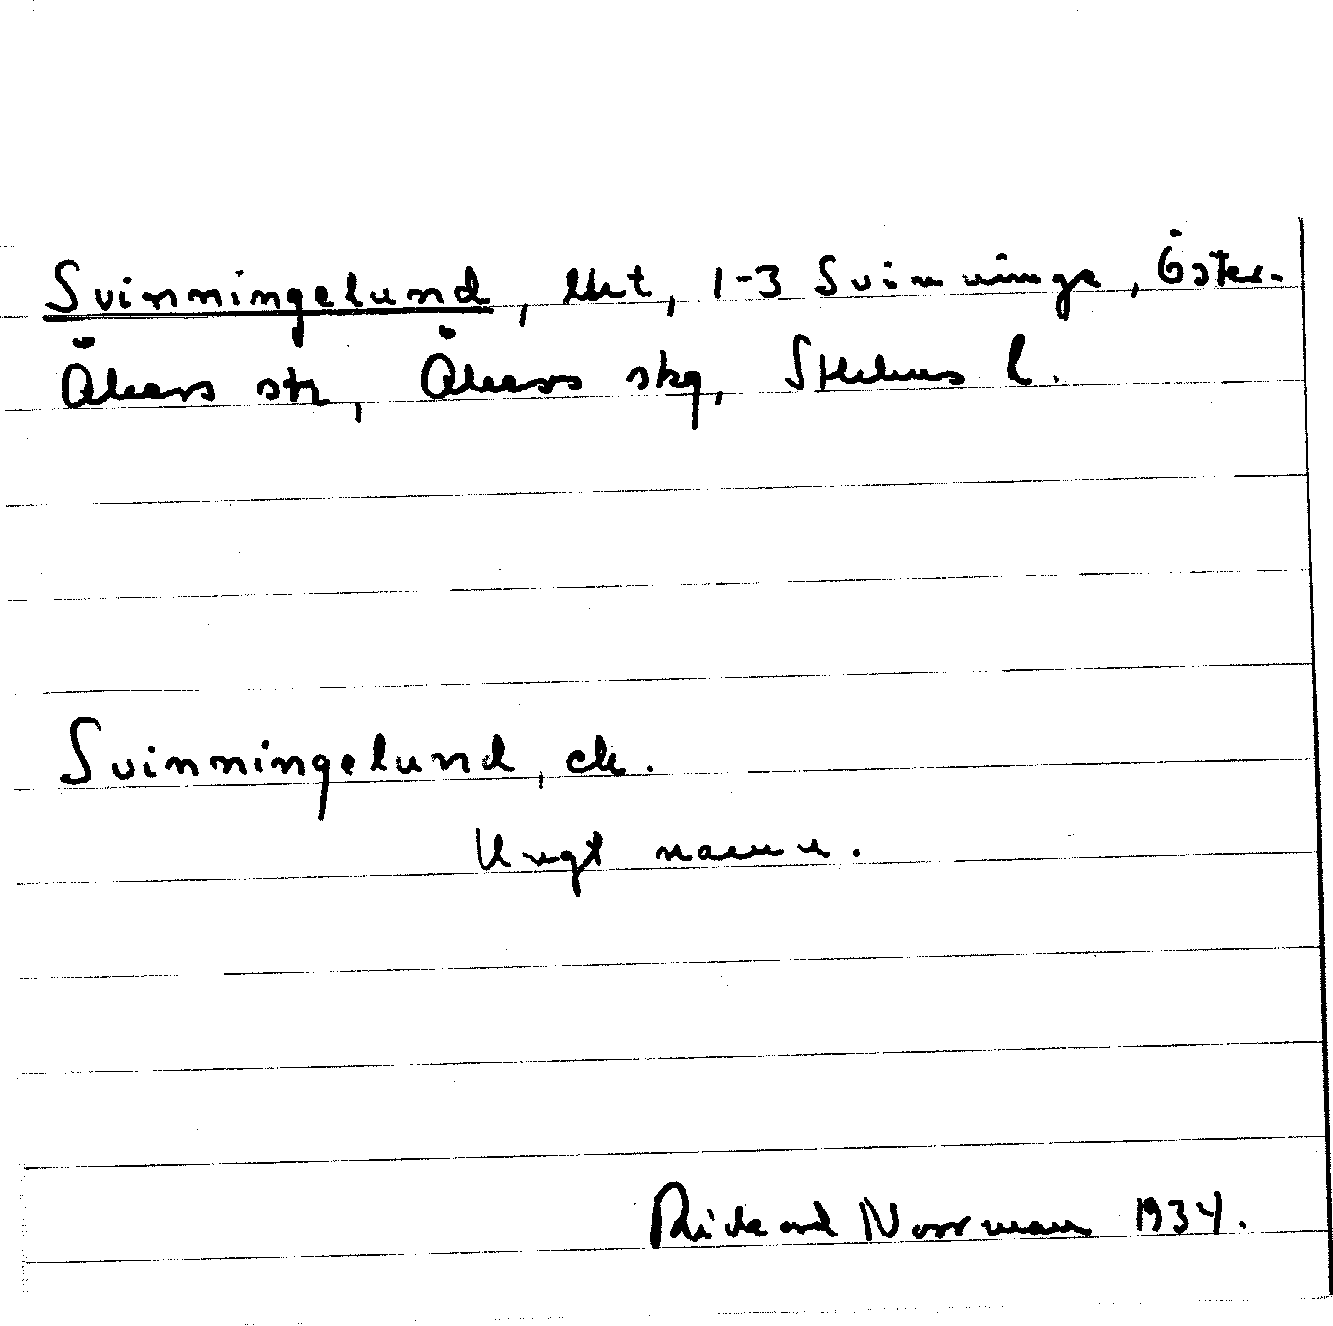 Svinningelund, lht, 1-3 Svinninge, Öster-
Åkers sn, Åkers skg, Sthlms l.
Svinningelund, ek.
Ungt namn.
Rickard Norrman 1934.